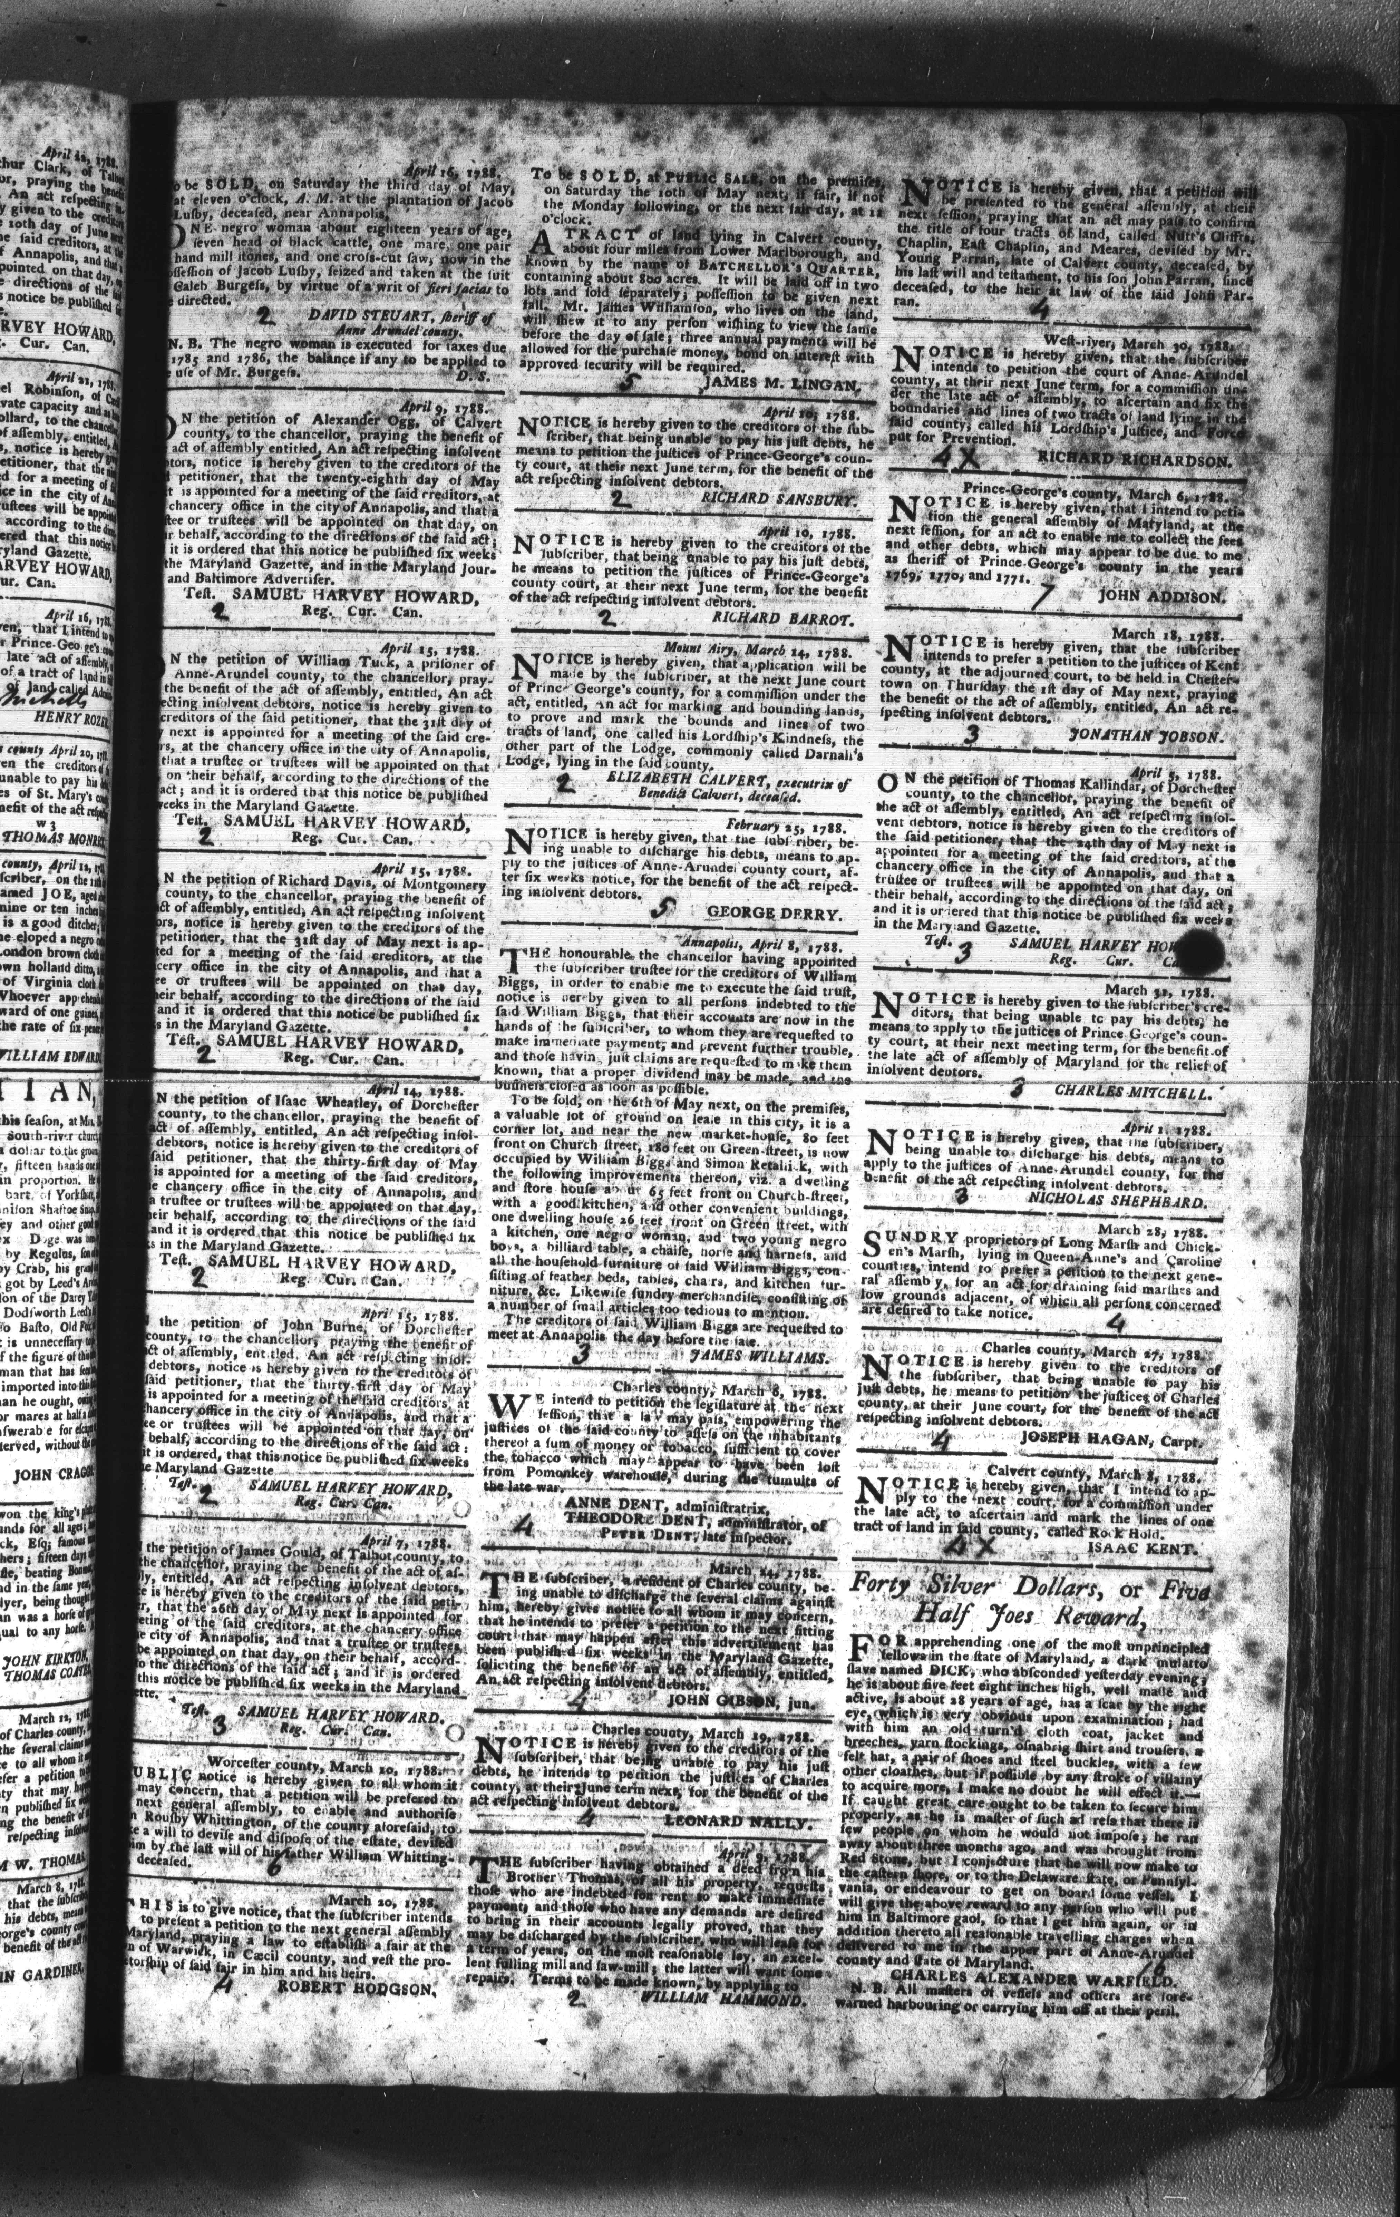 April 22, 1788.
thur Clark, of Talbot
or, praying the benefit
An act respecting in-
y given to the creditors
10th day of June next
he said creditors, at the
f Annapolis, and that a
pointed on that day, on
e directions of the said
s notice be published six
RVEY HOWARD,
g. Cur. Can.
April 21, 1788.
el Robinson, of
vate capacity and as
ollard, to the chancellor
of assembly, entitled, An
s, notice is hereby given
etitioner, that the
ed for a meeting of
ice in the city of An
rustees will be appoint
according to the direc
ered that this notice be
ryland Gazette.
ARVEY HOWARD,
ur. Can.
April 16, 1788.
ven, that I intend to
r Prince-George's
late act of assembly
of a tract of land in
land called
HENRY ROZER
county April 20, 1788.
ven the creditors of
unable to pay his
es of St. Mary's
nefit of the act respe
w 3
THOMAS MONRE
county, April 12, 178
scriber, on the
named JOE, aged
nine or ten inches
is a good ditcher,
he eloped a negro
London brown cloth
own holland ditto,
of Virginia cloth
Whoever apprehends
ward of one guinea,
the rate of six pence
WILLIAM EDWARD
TIAN,
this season, at Mrs.
South-river church
a dollar to the groom
fifteen hands
in proportion. He
bart. of Yorkshire,
nnison Shaftoe
ey and other good
Doge was
by Regulus,
by Crab, his
got by Leed's
on of the Darcy
Dodsworth Leed's
o Basto, Old
t is unnecessary
of the figure of this
man that has
imported into this
an he ought,
or mares at half a
nswerable for escapes
terved, without the
JOHN CRAGGS
won the king's
unds for all ages;
ck, Esq; famous
hers; fifteen days
fle, beating
nd in the same year
lyer, being thought
an was a horse of
ual to any horse,
JOHN KIRKTON,
THOMAS COATES
March 12, 178
of Charles county,
the several claims
ce to all whom it
efer a petition to
nty that may
n published six
ng the benefit of
respecting insol
M W. THOMAS
March 8, 178
that the subscriber
his debts, means
orge's county court
benefit of the act
IN GARDINER.
April 16, 1788.
o be SOLD, on Saturday the third day of May,
at eleven o'clock, A. M. at the plantation of Jacob
Lusby, deceased, near Annapolis,
ONE negro woman about eighteen years of age,
seven head of black cattle, one mare, one pair
hand mill stones, and one cross-cut saw; now in the
ossession of Jacob Lusby, seized and taken at the suit
Caleb Burgess, by virtue of a writ of fieri facias to
e directed.
2 DAVID STEUART, sheriff of
Anne Arundel county.
N. B. The negro woman is executed for taxes due
1785 and 1786, the balance if any to be applied to
e use of Mr. Burgess. D. S.
April 9, 1788.
ON the petition of Alexander Ogg, of Calvert
county, to the chancellor, praying the benefit of
act of assembly entitled, An act respecting insolvent
btors, notice is hereby given to the creditors of the
d petitioner, that the twenty-eighth day of May
t is appointed for a meeting of the said creditors, at
chancery office in the city of Annapolis, and that a
stee or trustees will be appointed on that day, on
ir behalf, according to the directions of the said act;
it is ordered that this notice be published six weeks
the Maryland Gazette, and in the Maryland Jour-
and Baltimore Advertiser.
Test. SAMUEL HARVEY HOWARD,
2 Reg. Cur. Can.
April 15, 1788.
N the petition of William Tuck, a prisoner of
Anne-Arundel county, to the chancellor, pray-
the benefit of the act of assembly, entitled, An act
ecting insolvent debtors, notice is hereby given to
creditors of the said petitioner, that the 31st day of
y next is appointed for a meeting of the said cre-
rs, at the chancery office in the city of Annapolis,
that a trustee or trustees will be appointed on that
on their behalf, according to the directions of the
act; and it is ordered that this notice be published
weeks in the Maryland Gazette.
Test. SAMUEL HARVEY HOWARD,
2 Reg. Cur. Can.
April 15, 1788.
N the petition of Richard Davis, of Montgomery
county, to the chancellor, praying the benefit of
act of assembly, entitled, An act respecting insolvent
ors, notice is hereby given to the creditors of the
petitioner, that the 31st day of May next is ap-
ted for a meeting of the said creditors, at the
cery office in the city of Annapolis, and that a
ee or trustees will be appointed on that day,
heir behalf, according to the directions of the said
and it is ordered that this notice be published six
s in the Maryland Gazette.
Test. SAMUEL HARVEY HOWARD,
2 Reg. Cur. Can.
April 14, 1788.
N the petition of Isaac Wheatley, of Dorchester
county, to the chancellor, praying the benefit of
act of assembly, entitled, An act respecting insol-
debtors, notice is hereby given to the creditors of
said petitioner, that the thirty-first day of May
is appointed for a meeting of the said creditors,
e chancery office in the city of Annapolis, and
a trustee or trustees will be appointed on that day,
heir behalf, according to the directions of the said
and it is ordered that this notice be published six
ks in the Maryland Gazette.
Test. SAMUEL HARVEY HOWARD,
2 Reg. Cur. Can.
April 15, 1788.
the petition of John Burne, of Dorchester
county, to the chancellor, praying the benefit of
act of assembly, entitled, An act respecting insol-
debtors, notice is hereby given to the creditors of
said petitioner, that the thirty-first day of May
is appointed for a meeting of the said creditors at
hancery office in the city of Annapolis, and that a
ee or trustees will be appointed on that day, on
behalf, according to the directions of the said act:
it is ordered, that this notice be published six weeks
e Maryland Gazette
Test. SAMUEL HARVEY HOWARD,
2 Reg. Cur. Can.
April 7, 1788.
the petition of James Gould, of Talbot county, to
the chancellor, praying the benefit of the act of as-
ly, entitled, An act respecting insolvent debtors,
e is hereby given to the creditors of the said peti-
r, that the 26th day of May next is appointed for
eeting of the said creditors, at the chancery office
e city of Annapolis, and that a trustee or trustees
be appointed on that day, on their behalf, accord-
to the directions of the said act; and it is ordered
this notice be published six weeks in the Maryland
ette.
Test. SAMUEL HARVEY HOWARD.
3 Reg. Cur. Can.
Worcester county, March 10, 1788.
UBLIC notice is hereby given to all whom it
may concern, that a petition will be prefered to
next general assembly, to enable and authorise
n Rousby Whittington, of the county aforesaid, to
ke a will to devise and dispose of the estate, devised
im by the last will of his father William Whitting-
deceased. 6
March 20, 1788.
HIS is to give notice, that the subscriber intends
to present a petition to the next general assembly
Maryland, praying a law to establish a fair at the
n of Warwick, in Cæcil county, and vest the pro-
etorship of said fair in him and his heirs.
4 ROBERT HODGSON.
To be SOLD, at PUBLIC SALE, on the premises,
on Saturday the 10th of May next, if fair, if not
the Monday following, or the next fair day, at 12
o'clock.
A TRACT of land lying in Calvert county,
about four miles from Lower Marlborough, and
known by the name of BATCHELLOR'S QUARTER,
containing about 800 acres. It will be laid off in two
lots and sold separately; possession to be given next
fall. Mr. James Williamson, who lives on the land,
will shew it to any person wishing to view the same
before the day of sale; three annual payments will be
allowed for the purchase money, bond on interest with
approved security will be required.
5 JAMES M. LINGAN.
April 10, 1788.
NOTICE is hereby given to the creditors of the sub-
scriber, that being unable to pay his just debts, he
means to petition the justices of Prince-George's coun-
ty court, at their next June term, for the benefit of the
act respecting insolvent debtors.
2 RICHARD SANSBURY.
April 10, 1788.
NOTICE is hereby given to the creditors of the
subscriber, that being unable to pay his just debts,
he means to petition the justices of Prince-George's
county court, at their next June term, for the benefit
of the act respecting insolvent debtors.
2 RICHARD BARROT.
Mount Airy, March 14, 1788.
NOTICE is hereby given, that application will be
made by the subscriber, at the next June court
of Prince George's county, for a commission under the
act, entitled, An act for marking and bounding lands,
to prove and mark the bounds and lines of two
tracts of land, one called his Lordship's Kindness, the
other part of the Lodge, commonly called Darnall's
Lodge, lying in the said county.
2 ELIZABETH CALVERT, executrix of
Benedict Calvert, deceased.
February 25, 1788.
NOTICE is hereby given, that the subscriber, be-
ing unable to discharge his debts, means to ap-
ply to the justices of Anne-Arundel county court, af-
ter six weeks notice, for the benefit of the act respect-
ing insolvent debtors.
5 GEORGE DERRY.
Annapolis, April 8, 1788.
THE honourable the chancellor having appointed
the subscriber trustee for the creditors of William
Biggs, in order to enable me to execute the said trust,
notice is hereby given to all persons indebted to the
said William Biggs, that their accounts are now in the
hands of the subscriber, to whom they are requested to
make immediate payment, and prevent further trouble,
and those having just claims are requested to make them
known, that a proper dividend may be made, and the
business closed as soon as possible.
To be sold, on the 6th of May next, on the premises,
a valuable lot of ground on lease in this city, it is a
corner lot, and near the new market-house, 80 feet
front on Church street, 180 feet on Green-street, is now
occupied by William Biggs and Simon Retalick, with
the following improvements thereon, viz. a dwelling
and store house about 65 feet front on Church-street,
with a good kitchen, and other convenient buildings,
one dwelling house 26 feet front on Green street, with
a kitchen, one negro woman, and two young negro
boys, a billiard table, a chaise, horse and harness, and
all the household furniture of said William Biggs, con-
sisting of feather beds, tables, chairs, and kitchen fur-
niture, &c. Likewise sundry merchandise, consisting of
a number of small articles too tedious to mention.
The creditors of said William Biggs are requested to
meet at Annapolis the day before the sale.
3 JAMES WILLIAMS.
Charles county, March 6, 1788.
WE intend to petition the legislature at the next
session, that a law may pass, empowering the
justices of the said county to assess on the inhabitants
thereof a sum of money or tobacco, sufficient to cover
the tobacco which may appear to have been lost
from Pomonkey warehouse, during the tumults of
the late war.
ANNE DENT, administratrix,
4 THEODORE DENT, administrator, of
PETER DENT, late inspector.
March 24, 1788.
THE subscriber, a resident of Charles county, be-
ing unable to discharge the several claims against
him, hereby gives notice to all whom it may concern,
that he intends to prefer a petition to the next sitting
court that may happen after this advertisement has
been published six weeks in the Maryland Gazette,
soliciting the benefit of an act of assembly, entitled,
An act respecting insolvent debtors.
4 JOHN GIBSON, jun.
Charles county, March 19, 1788.
NOTICE is hereby given to the creditors of the
subscriber, that being unable to pay his just
debts, he intends to petition the justices of Charles
county, at their June term next, for the benefit of the
act respecting insolvent debtors.
4 LEONARD NALLY.
April 9, 1788.
THE subscriber having obtained a deed from his
Brother Thomas, of all his property, requests
those who are indebted for rent to make immediate
payment, and those who have any demands are desired
to bring in their accounts legally proved, that they
may be discharged by the subscriber, who will lease for
a term of years, on the most reasonable lay, an excel-
lent fulling mill and saw-mill; the latter will want some
repairs. Terms to be made known, by applying to
2 WILLIAM HAMMOND.
NOTICE is hereby given, that a petition will
be presented to the general assembly, at their
next session, praying that an act may pass to confirm
the title of four tracts of land, called Nutt's Cliffts,
Chaplin, East Chaplin, and Meares, devised by Mr.
Young Parran, late of Calvert county, deceased, by
his last will and testament, to his son John Parran, since
deceased, to the heir at law of the said John Par-
ran. 4
West-river, March 30, 1788.
NOTICE is hereby given, that the subscriber
intends to petition the court of Anne-Arundel
county, at their next June term, for a commission un-
der the late act of assembly, to ascertain and fix the
boundaries and lines of two tracts of land lying in the
said county, called his Lordship's Justice, and Force
put for Prevention.
4 X RICHARD RICHARDSON.
Prince-George's county, March 6, 1788.
NOTICE is hereby given, that I intend to peti-
tion the general assembly of Maryland, at the
next session, for an act to enable me to collect the fees
and other debts, which may appear to be due to me
as sheriff of Prince-George's county in the years
1769, 1770, and 1771.
7 JOHN ADDISON.
March 18, 1788.
NOTICE is hereby given, that the subscriber
intends to prefer a petition to the justices of Kent
county, at the adjourned court, to be held in Chester-
town on Thursday the 1st day of May next, praying
the benefit of the act of assembly, entitled, An act re-
specting insolvent debtors.
3 JONATHAN JOBSON.
April 5, 1788.
ON the petition of Thomas Kallindar, of Dorchester
county, to the chancellor, praying the benefit of
the act of assembly, entitled, An act respecting insol-
vent debtors, notice is hereby given to the creditors of
the said petitioner, that the 24th day of May next is
appointed for a meeting of the said creditors, at the
chancery office in the city of Annapolis, and that a
trustee or trustees will be appointed on that day, on
their behalf, according to the directions of the said act;
and it is ordered that this notice be published six weeks
in the Maryland Gazette.
Test. SAMUEL HARVEY HOW
3 Reg. Cur. Ca
March 31, 1788.
NOTICE is hereby given to the subscriber's cre-
ditors, that being unable to pay his debts, he
means to apply to the justices of Prince George's coun-
ty court, at their next meeting term, for the benefit of
the late act of assembly of Maryland for the relief of
insolvent debtors.
3 CHARLES MITCHELL.
April 1. 1788.
NOTICE is hereby given, that the subscriber,
being unable to discharge his debts, means to
apply to the justices of Anne-Arundel county, for the
benefit of the act respecting insolvent debtors.
3 NICHOLAS SHEPHEARD.
March 28, 1788.
SUNDRY proprietors of Long Marsh and Chick-
en's Marsh, lying in Queen-Anne's and Caroline
counties, intend to prefer a petition to the next gene-
ral assembly, for an act for draining said marshes and
low grounds adjacent, of which all persons concerned
are desired to take notice. 4
Charles county, March 27, 1788.
NOTICE is hereby given to the creditors of
the subscriber, that being unable to pay his
just debts, he means to petition the justices of Charles
county, at their June court, for the benefit of the act
respecting insolvent debtors.
4 JOSEPH HAGAN, Carpt.
Calvert county, March 8, 1788.
NOTICE is hereby given, that I intend to ap-
ply to the next court, for a commission under
the late act, to ascertain and mark the lines of one
tract of land in said county, called Rock Hold.
4 X ISAAC KENT.
Forty Silver Dollars, or Five
Half Joes Reward,
FOR apprehending one of the most unprincipled
fellows in the state of Maryland, a dark mulatto
slave named DICK, who absconded yesterday evening;
he is about five feet eight inches high, well made and
active, is about 28 years of age, has a scar by the right
eye, which is very obvious upon examination; had
with him an old turn'd cloth coat, jacket and
breeches, yarn stockings, osnabrig shirt and trousers, a
felt hat, a pair of shoes and steel buckles, with a few
other cloathes, but if possible by any stroke of villainy
to acquire more, I make no doubt he will effect it.—
If caught great care ought to be taken to secure him
properly, as he is master of such address that there is
few people on whom he would not impose; he ran
away about three months ago, and was brought from
Red Stone, but I conjecture that he will now make to
the eastern shore, or to the Delaware state, or Pennsyl-
vania, or endeavour to get on board some vessel. I
will give the above reward to any person who will put
him in Baltimore gaol, so that I get him again, or in
addition thereto all reasonable travelling charges when
delivered to me in the upper part of Anne-Arundel
county and state of Maryland.
CHARLES ALEXANDER WARFIELD.
N. B. All masters of vessels and others are fore-
warned harbouring or carrying him off at their peril.